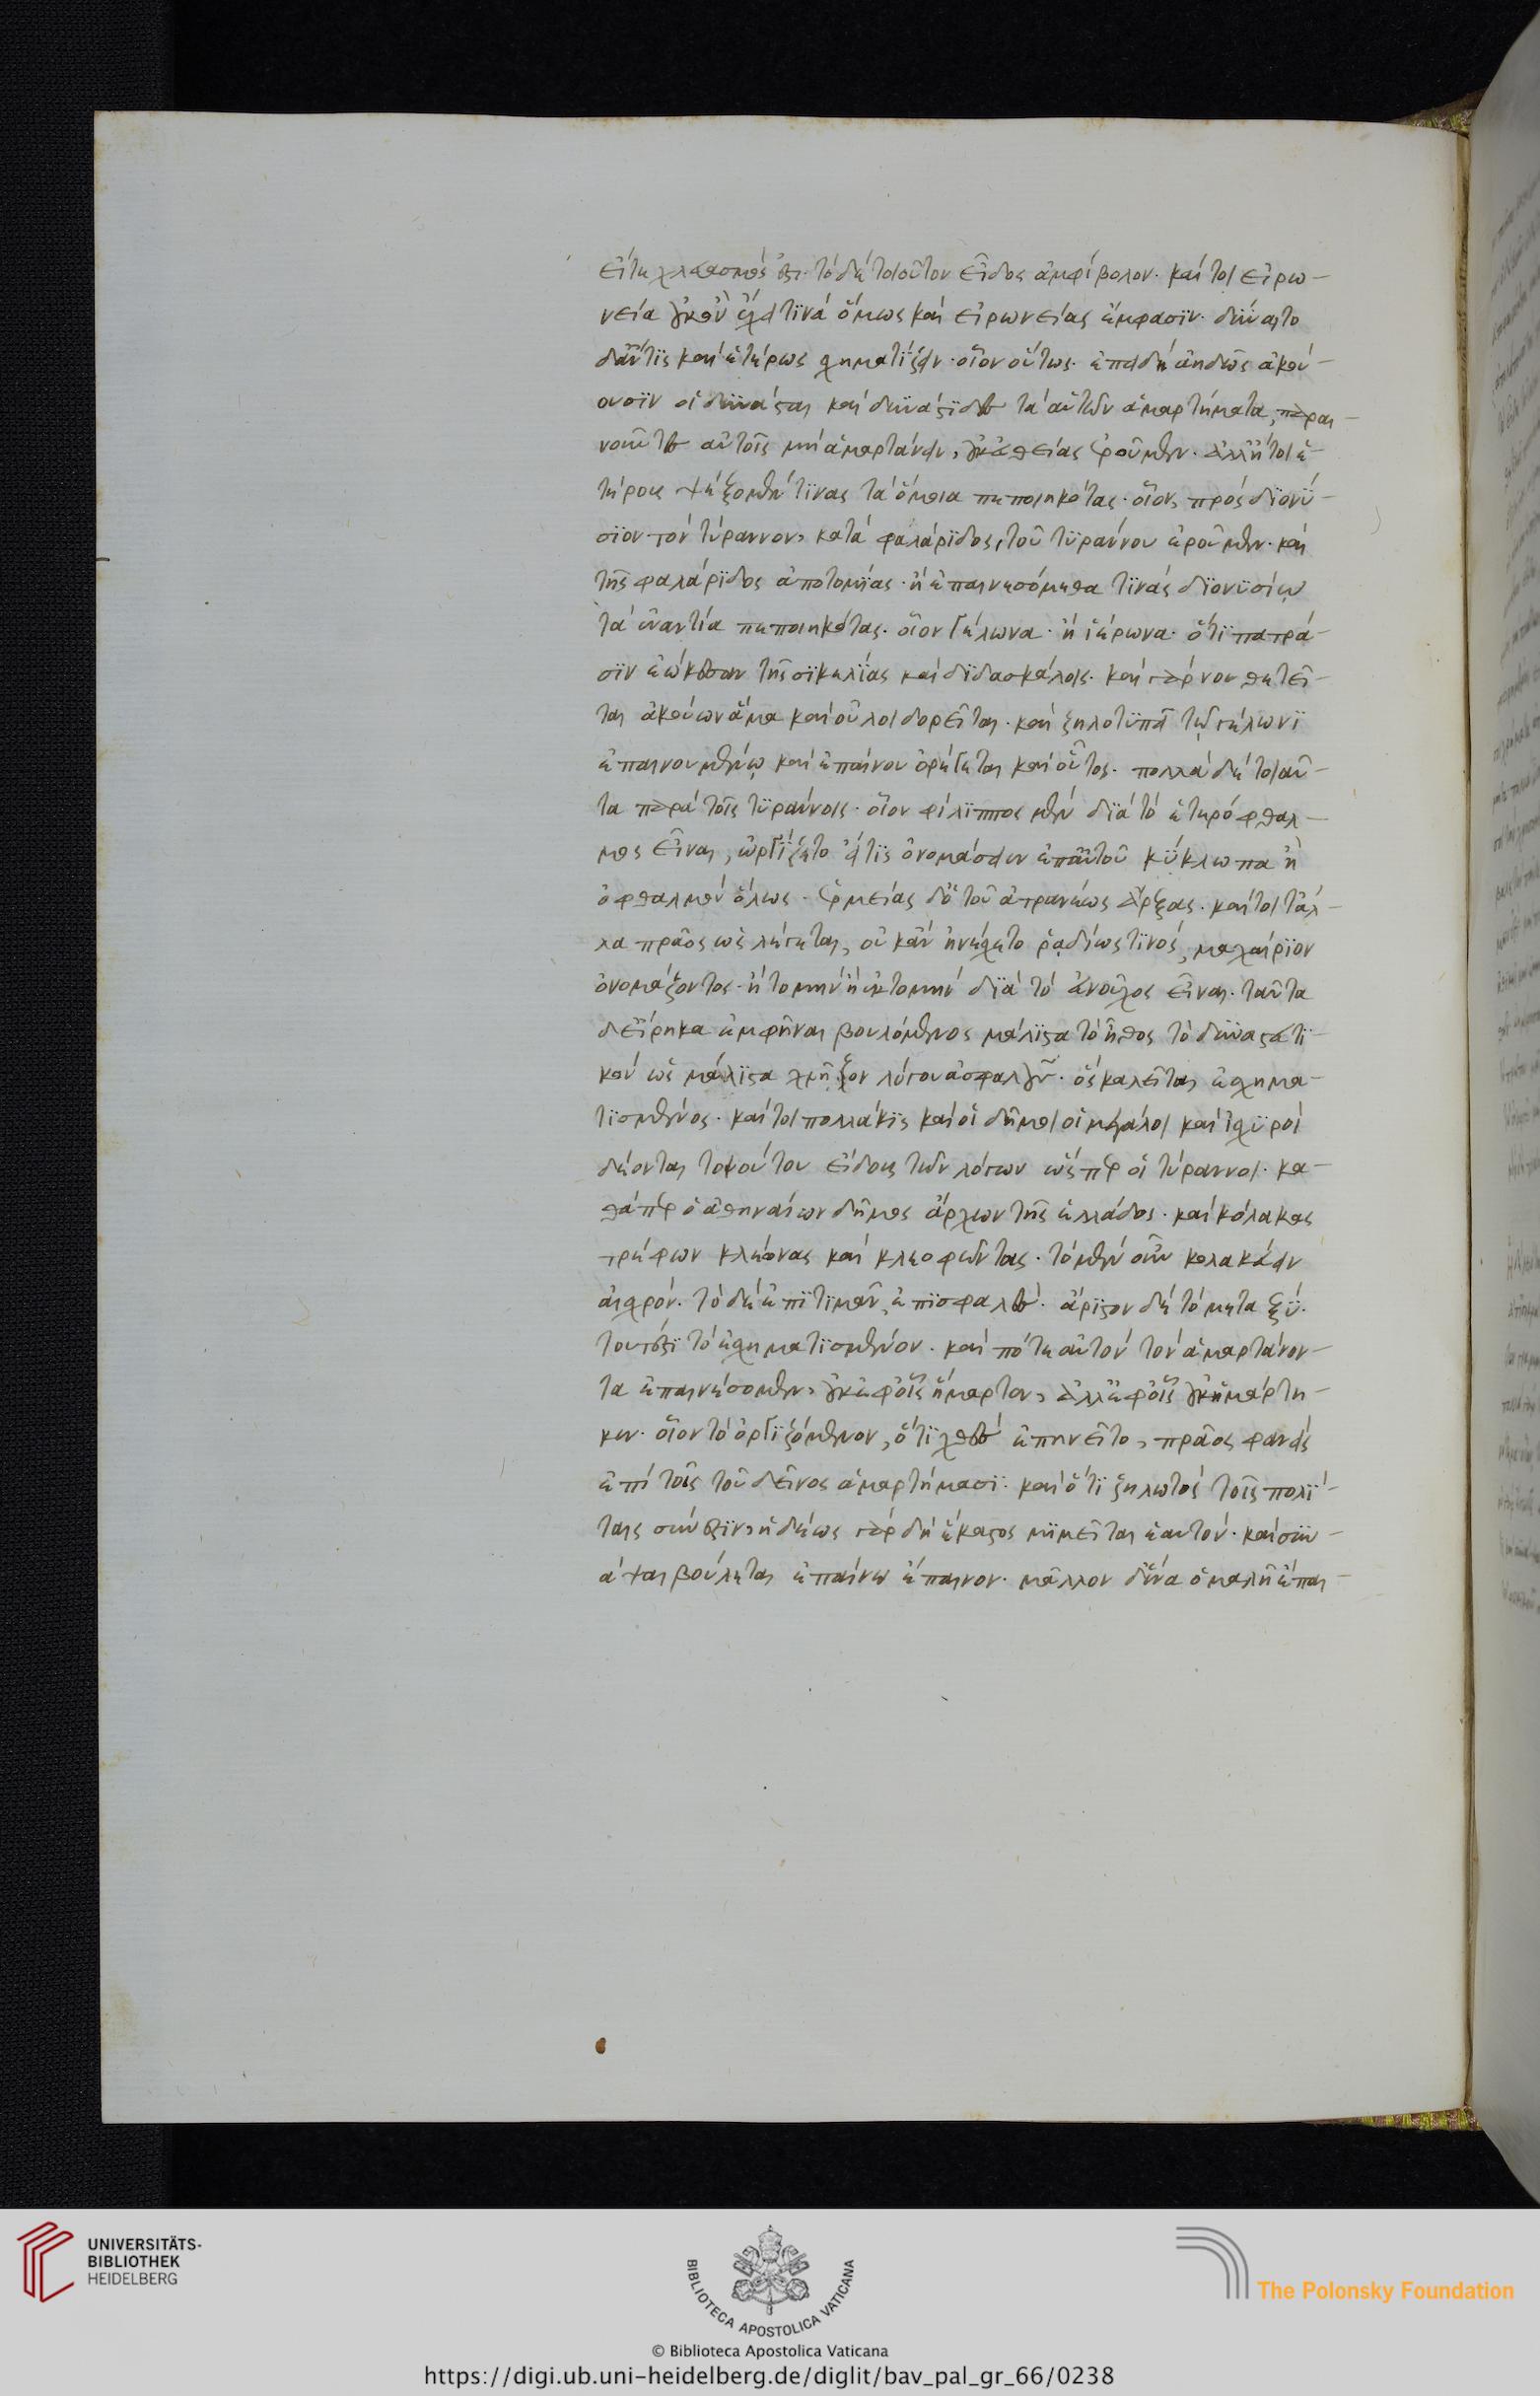 εἴτε χλευασμός ἐστι. τὸ δὲ τοιοῦτον εἶδος ἀμφίβολον· καί τοι εἰρω-
νεία οὐκ ὂν ἔχει τϊνὰ ὅμως καὶ εἰρωνείας ἔμφασϊν. δύναιτο
δἄν τϊς καὶ ἑτέρως σχηματίζειν· οἷον οὕτως· ἐπειδὴ ἀηδῶς ἀκού-
ουσϊν οἱ δυνάσται καὶ δυνάστϊδες τὰ αὐτῶν ἁμαρτήματα, παραι-
νοῦντες αὐτοῖς μὴ ἁμαρτάνειν, οὐκ εὐθείας ἐροῦμεν. ἀλλἤτοι ἑ-
τέρους ψέξομέν τϊνας τὰ ὅμοια πεποιηκότας· οἷον, πρὸς δϊονΰ-
σϊον τὸν τύραννον, κατὰ φαλάρϊδος, τοῦ τϋράννου ἐροῦμεν· καὶ
τῆς φαλάρϊδος ἀποτομΐας· ἢ ἐπαινεσόμεθα τϊνὰς δϊονϋσίῳ
τὰ ἐναντία πεποιηκότας· οἷον γέλωνα· ἢ ἱέρωνα· ὅτϊ πατρά-
σϊν ἐῴκεσαν τῆς σϊκελΐας καὶ δϊδασκάλοις· καὶ γὰρ νουθετεῖ-
ται ἀκούων ἅμα καὶ οὐ λοιδορεῖται· καὶ ζηλοτϋπεῖ τῷ γέλωνϊ
ἐπαινουμένῳ καὶ ἐπαίνου ὀρέγεται καὶ οὗτος. πολλὰ δὲ τοιαῦ-
τα παρὰ τοῖς τϋράννοις· οἷον φίλϊππος μὲν δϊὰ τὸ ἑτερόφθαλ-
μος εἶναι, ὠργΐζετο εἴ τϊς ὀνομάσειεν ἐπαὐτοῦ κΰκλωπα ἢ
ὀφθαλμὸν ὅλως. ἑρμείας δὁ τοῦ ἀτρανέως ἄρξας· καί τοι τἄλ-
λα πρᾶος ὡς λέγεται, οὐκ ἂν ἠνέχετο ῥᾳδίως τϊνὸς, μαχαίρϊον
ὀνομάζοντος· ἢ τομὴν ἢ ἐκτομὴν δϊὰ τὸ εὐνοῦχος εἶναι. ταῦτα
δεἴρηκα ἐμφῆναι βουλόμενος μάλϊστα τὸ ἦθος τὸ δυναστευτϊ-
κὸν ὡς μάλϊστα χρῆζον λόγου ἀσφαλοῦς. ὃς καλεῖται ἐσχημα-
τϊσμένος· καί τοι πολλάκϊς καὶ οἱ δῆμοι οἱ μεγάλοι καὶ ἰσχϋροὶ
δέονται τοιούτου εἴδους τῶν λόγων ὥσπερ οἱ τύραννοι· κα-
θάπερ ὁ ἀθηναίων δῆμος ἄρχων τῆς ἑλλάδος· καὶ κόλακας
τρέφων κλέωνας καὶ κλεοφῶντας. τὸ μὲν οὖν κολακεύειν
αἰσχρόν. τὸ δὲ ἐπϊτϊμᾶν, ἐπϊσφαλές. ἄρϊστον δὲ τὸ μεταξΰ.
τουτέστϊ τὸ ἐσχηματϊσμένον. καὶ πότε αὐτὸν τὸν ἁμαρτάνον-
τα ἐπαινέσομεν, οὐκ ἐφοἷς ἥμαρτον, ἀλλἐφοἷς οὐχ ἡμάρτη-
κεν· οἷον τὸ ὀργϊζόμενον, ὅτϊ χθὲς ἐπηνεῖτο, πρᾶος φανεὶς
ἐπὶ τοῖς τοῦ δεῖνος ἁμαρτήμασϊ· καὶ ὅτϊ ζηλωτὸς τοῖς πολΐ-
ταις σύνεστϊν, ἡδέως γὰρ δὴ ἕκαστος μϊμεῖται ἑαυτόν· καὶ συν-
άψαι βούλεται ἐπαίνῳ ἔπαινον. μᾶλλον δἕνα ὁμαλῆ ἔπαι-
UNIVERSITÄTS-
BIBLIOTHEK
HEIDELBERG
BIBLIOTECA APOSTOLICA VATICANA
The Polonsky Foundation
© Biblioteca Apostolica Vaticana
https://digi.ub.uni-heidelberg.de/diglit/bav_pal_gr_66/0238